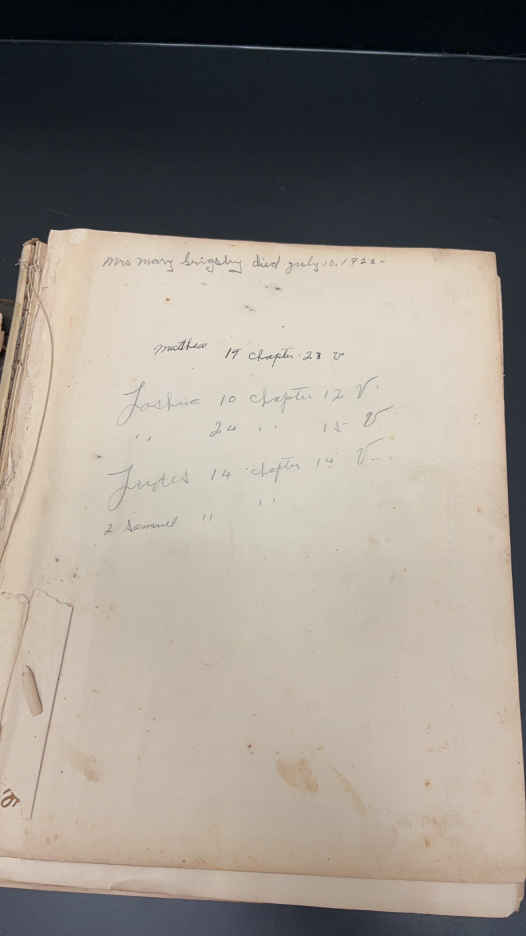 Mrs Mary Grigsby died July 10, 1922-
Matthew 19 chapter 28 v
Joshua 10 chapter 12 V.
" 24 " 15 V
Judges 14 chapter 14 V.
2 Samuel " "